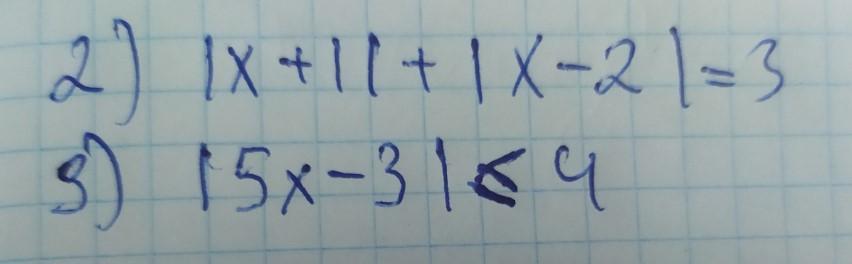 2) |x+1|+|x-2|=3
3) |5x-3|<4